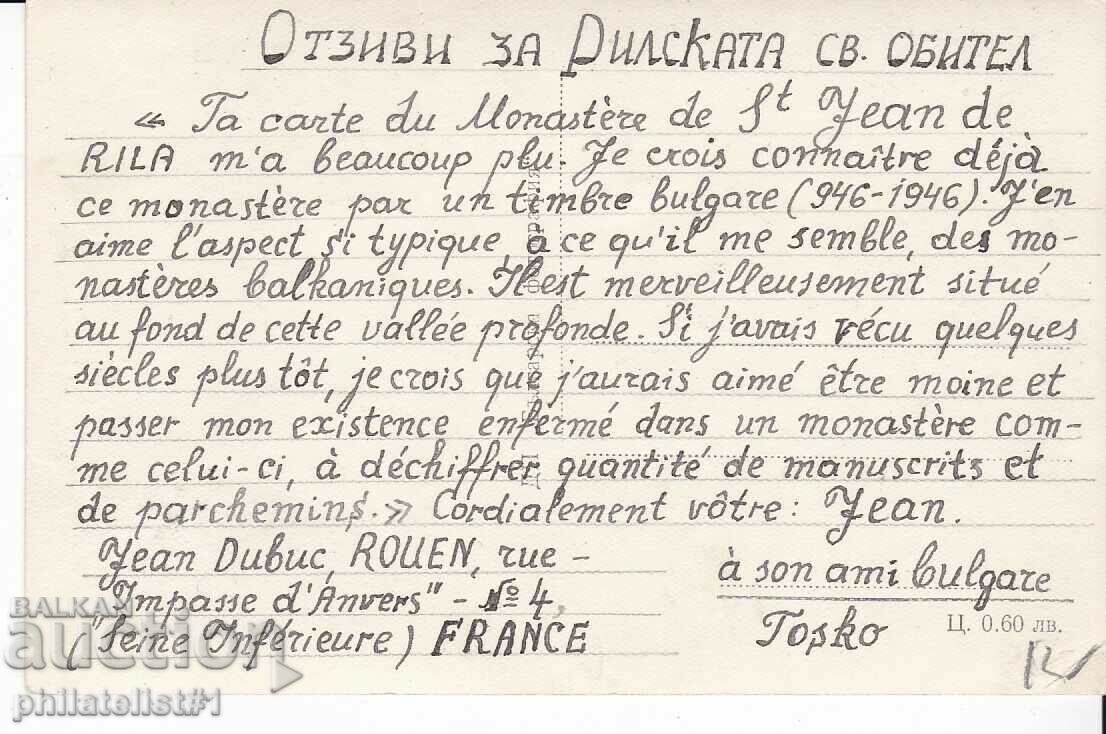 Отзиви за Рилската св. обител
« Ta carte du Monastère de St Jean de
RILA m'a beaucoup plu. Je crois connaître déjà
ce monastère par un timbre bulgare (946-1946). J'en
aime l'aspect si typique, à ce qu'il me semble, des mo-
nastères balkaniques. Il est merveilleusement situé
au fond de cette vallée profonde. Si j'avais vécu quelques
siècles plus tôt, je crois que j'aurais aimé être moine et
passer mon existence enfermé dans un monastère com-
me celui-ci, à déchiffrer quantité de manuscrits et
de parchemins.» Cordialement vôtre: Jean.
Jean Dubuc, ROUEN, rue -
"Impasse d'Anvers" - № 4,
(Seine Inférieure) FRANCE
à son ami bulgare
Tosko
Ц. 0.60 лв.
BALKAN
auction
philatelist#1